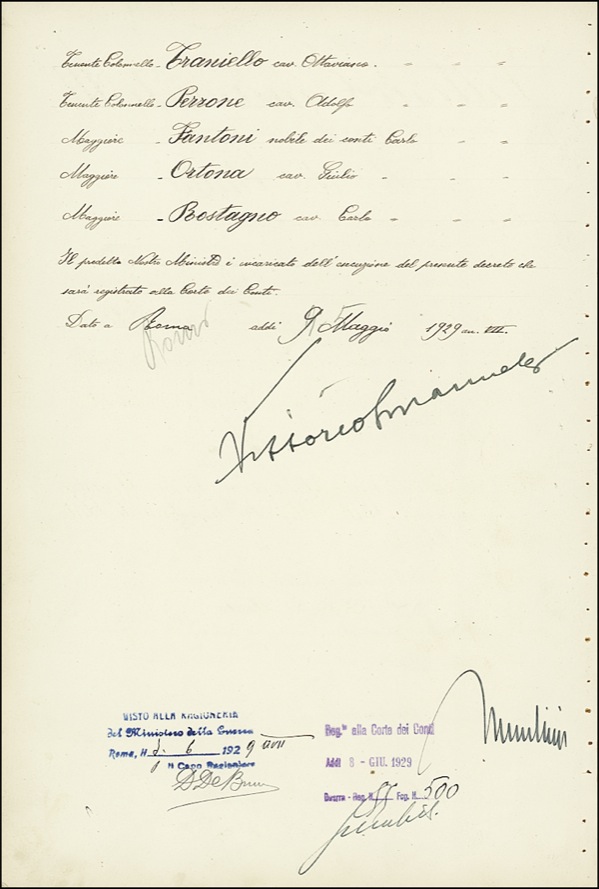 Tenente Colonnello - Traniello cav. Ottaviano. " " "
Tenente Colonnello - Perrone cav. Adolfo " " "
Maggiore - Fantoni nobile dei conti Carlo " "
Maggiore - Ortona cav. Giulio " " "
Maggiore - Rostagno cav. Carlo " " "
Il predetto Nostro Ministro è incaricato dell'esecuzione del presente decreto che
sarà registrato alla Corte dei Conti.
Dato a Roma addì 9 Maggio 1929 an. VII.
Roma
Vittorio Emanuele
VISTO ALLA RAGIONERIA
del Ministero della Guerra
Roma, li 6 1929 a VII
Il Capo Ragioniere
Reg.to alla Corte dei Conti
Addì 8 - GIU. 1929
Guerra - Reg. N. Fog. N. 500